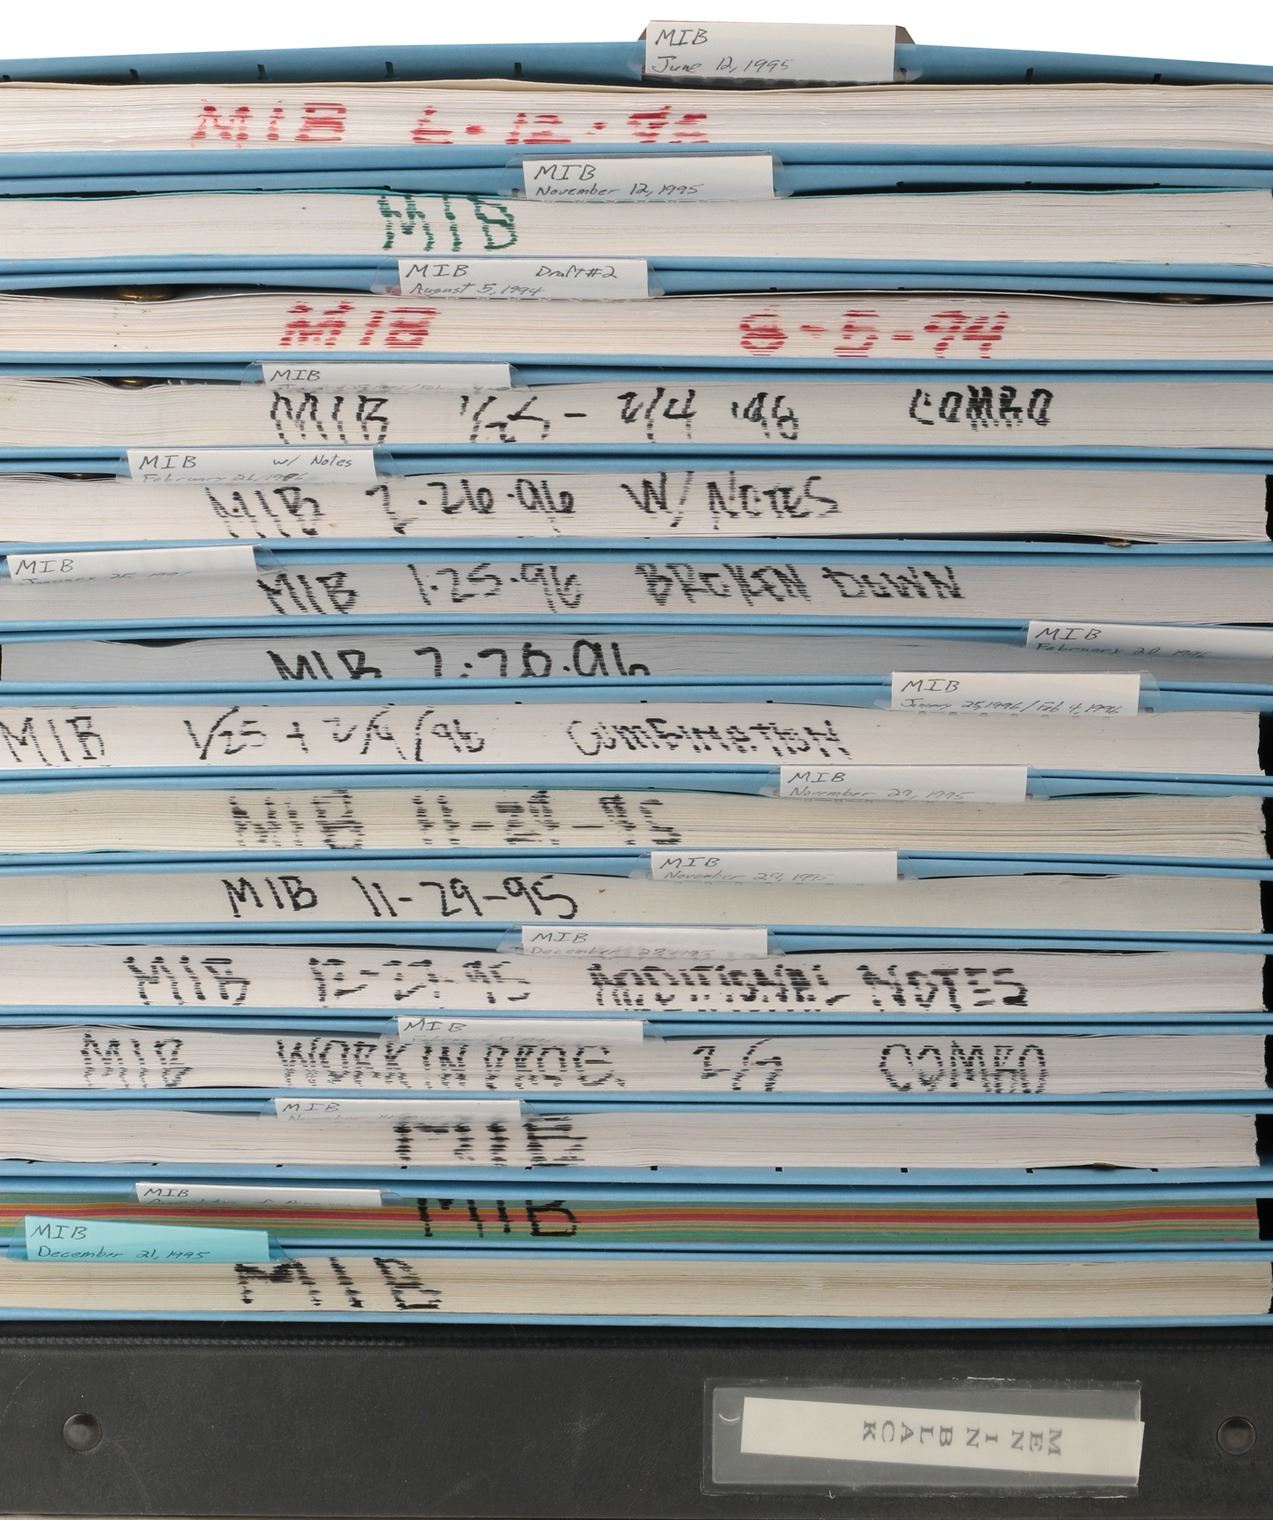 MIB
June 12, 1995
MIB 6-12-95
MIB
November 12, 1995
MIB
MIB Draft #2
August 5, 1994
MIB 8-5-94
MIB
MIB 1/25 - 2/4 '96 COMBO
MIB w/ Notes
February 26, 1996
MIB 2-26-96 W/ NOTES
MIB
January 25, 1996
MIB 1-25-96 BROKEN DOWN
MIB
February 20, 1996
MIB 2.20.96
MIB
January 25, 1996 / Feb 4, 1996
MIB 1/25 + 2/4/96 COMBINATION
MIB
November 29, 1995
MIB 11-29-95
MIB
November 29, 1995
MIB 11-29-95
MIB
December
MIB 12-27-95 ADDITIONAL NOTES
MIB
MIB WORK IN PROG. COMBO
MIB
MIB
MIB
MIB
MIB
December 21, 1995
MIB
MEN IN BLACK